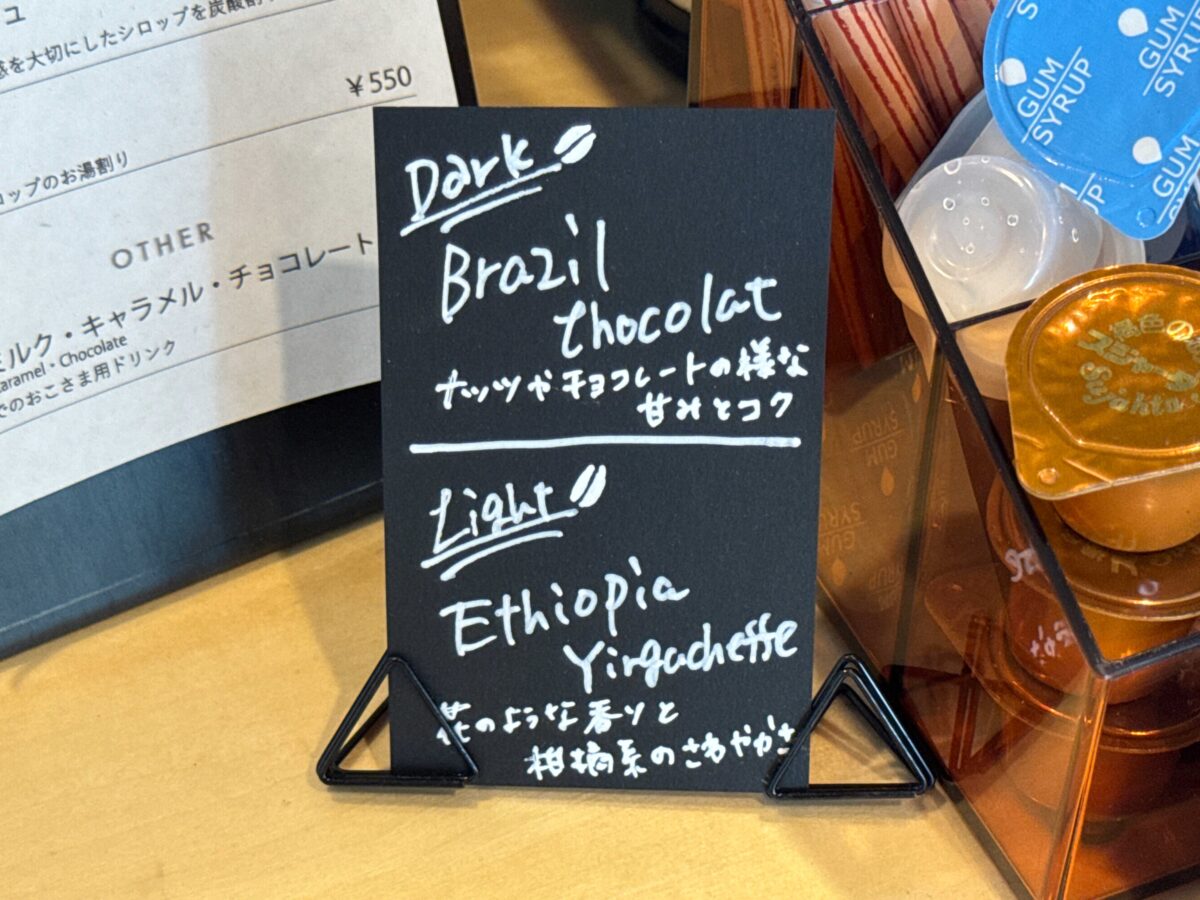 感を大切にしたシロップを炭酸割
¥550
ロップのお湯割り
OTHER
ミルク・キャラメル・チョコレート
aramel・Chocolate
でのおこさま用ドリンク
Dark
Brazil
Chocolat
ナッツやチョコレートの様な
甘みとコク
Light
Ethiopia
Yirgacheffe
花のような香りと
柑橘系のさわやかさ
GUM
SYRUP
GUM
SYRUP
GUM
SYRUP